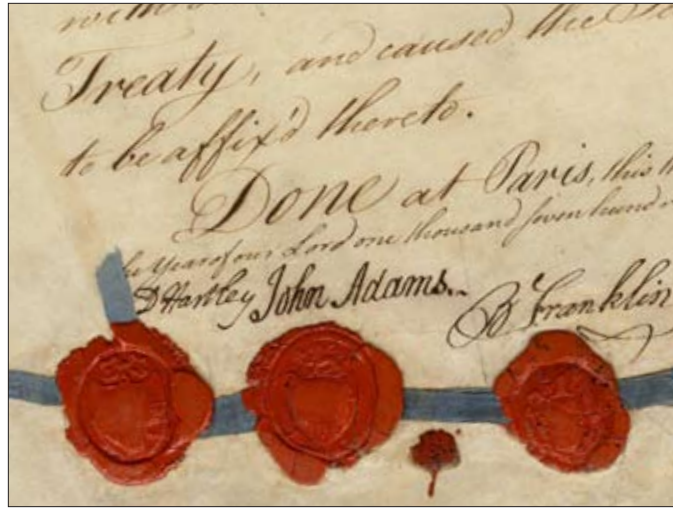 Treaty, and caused the
to be affix'd thereto.
Done at Paris, this
Year of our Lord one thousand seven hund
D Hartley John Adams. B Franklin